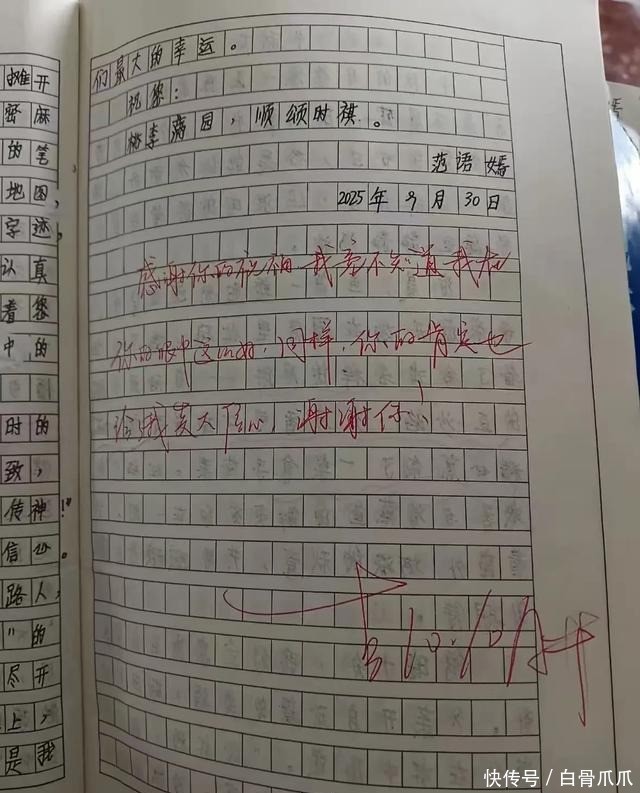 摊开
密麻
的笔
地图，
字迹，
认真
着您
中的
时的
致，
传神！"
信心。
路人，
"的
尽开
上，
是我
们最大的幸运。
祝您：
桃李满园，顺颂时祺。
范语嫣
2025年9月30日
感谢你的祝福，我竟不知道我在
你的眼中这么好，同样，你的肯定也
给我莫大信心，谢谢你！
快传号/白骨爪爪